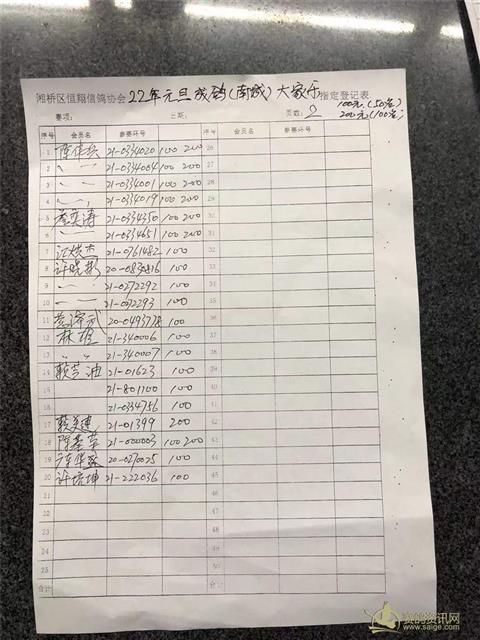 湘桥区恒翔信鸽协会 22年元旦成鸽(南城)大家乐 指定登记表
100元(50名)
赛项: 日期: 页数: 2 200元(100名)
序号 会员名 参赛环号 序号 会员名 参赛环号
1 陈伟兵 21-0334020 100 200 26
2 〃 21-0334004 100 200 27
3 〃 21-0334001 100 200 28
4 〃 21-0334019 100 200 29
5 李奕涛 21-0334350 100 200 30
6 〃 21-0334651 100 200 31
7 江焕杰 21-0761482 100 32
8 许晓彬 20-0830816 100 33
9 〃 21-0272292 100 34
10 〃 21-0272293 100 35
11 20-0493778 100 36
12 林旭 21-340006 100 37
13 〃 21-340007 100 38
14 赖吉迪 21-01623 100 39
15 21-801700 100 40
16 21-0334756 100 41
17 赖美建 21-01399 200 42
18 陈基荣 21-000005 100 200 43
19 卢华盛 20-0270025 100 44
20 许培坤 21-222036 100 45
21 46
22 47
23 48
24 49
25 50
合计 合计
赛鸽资讯网
www.saige.com